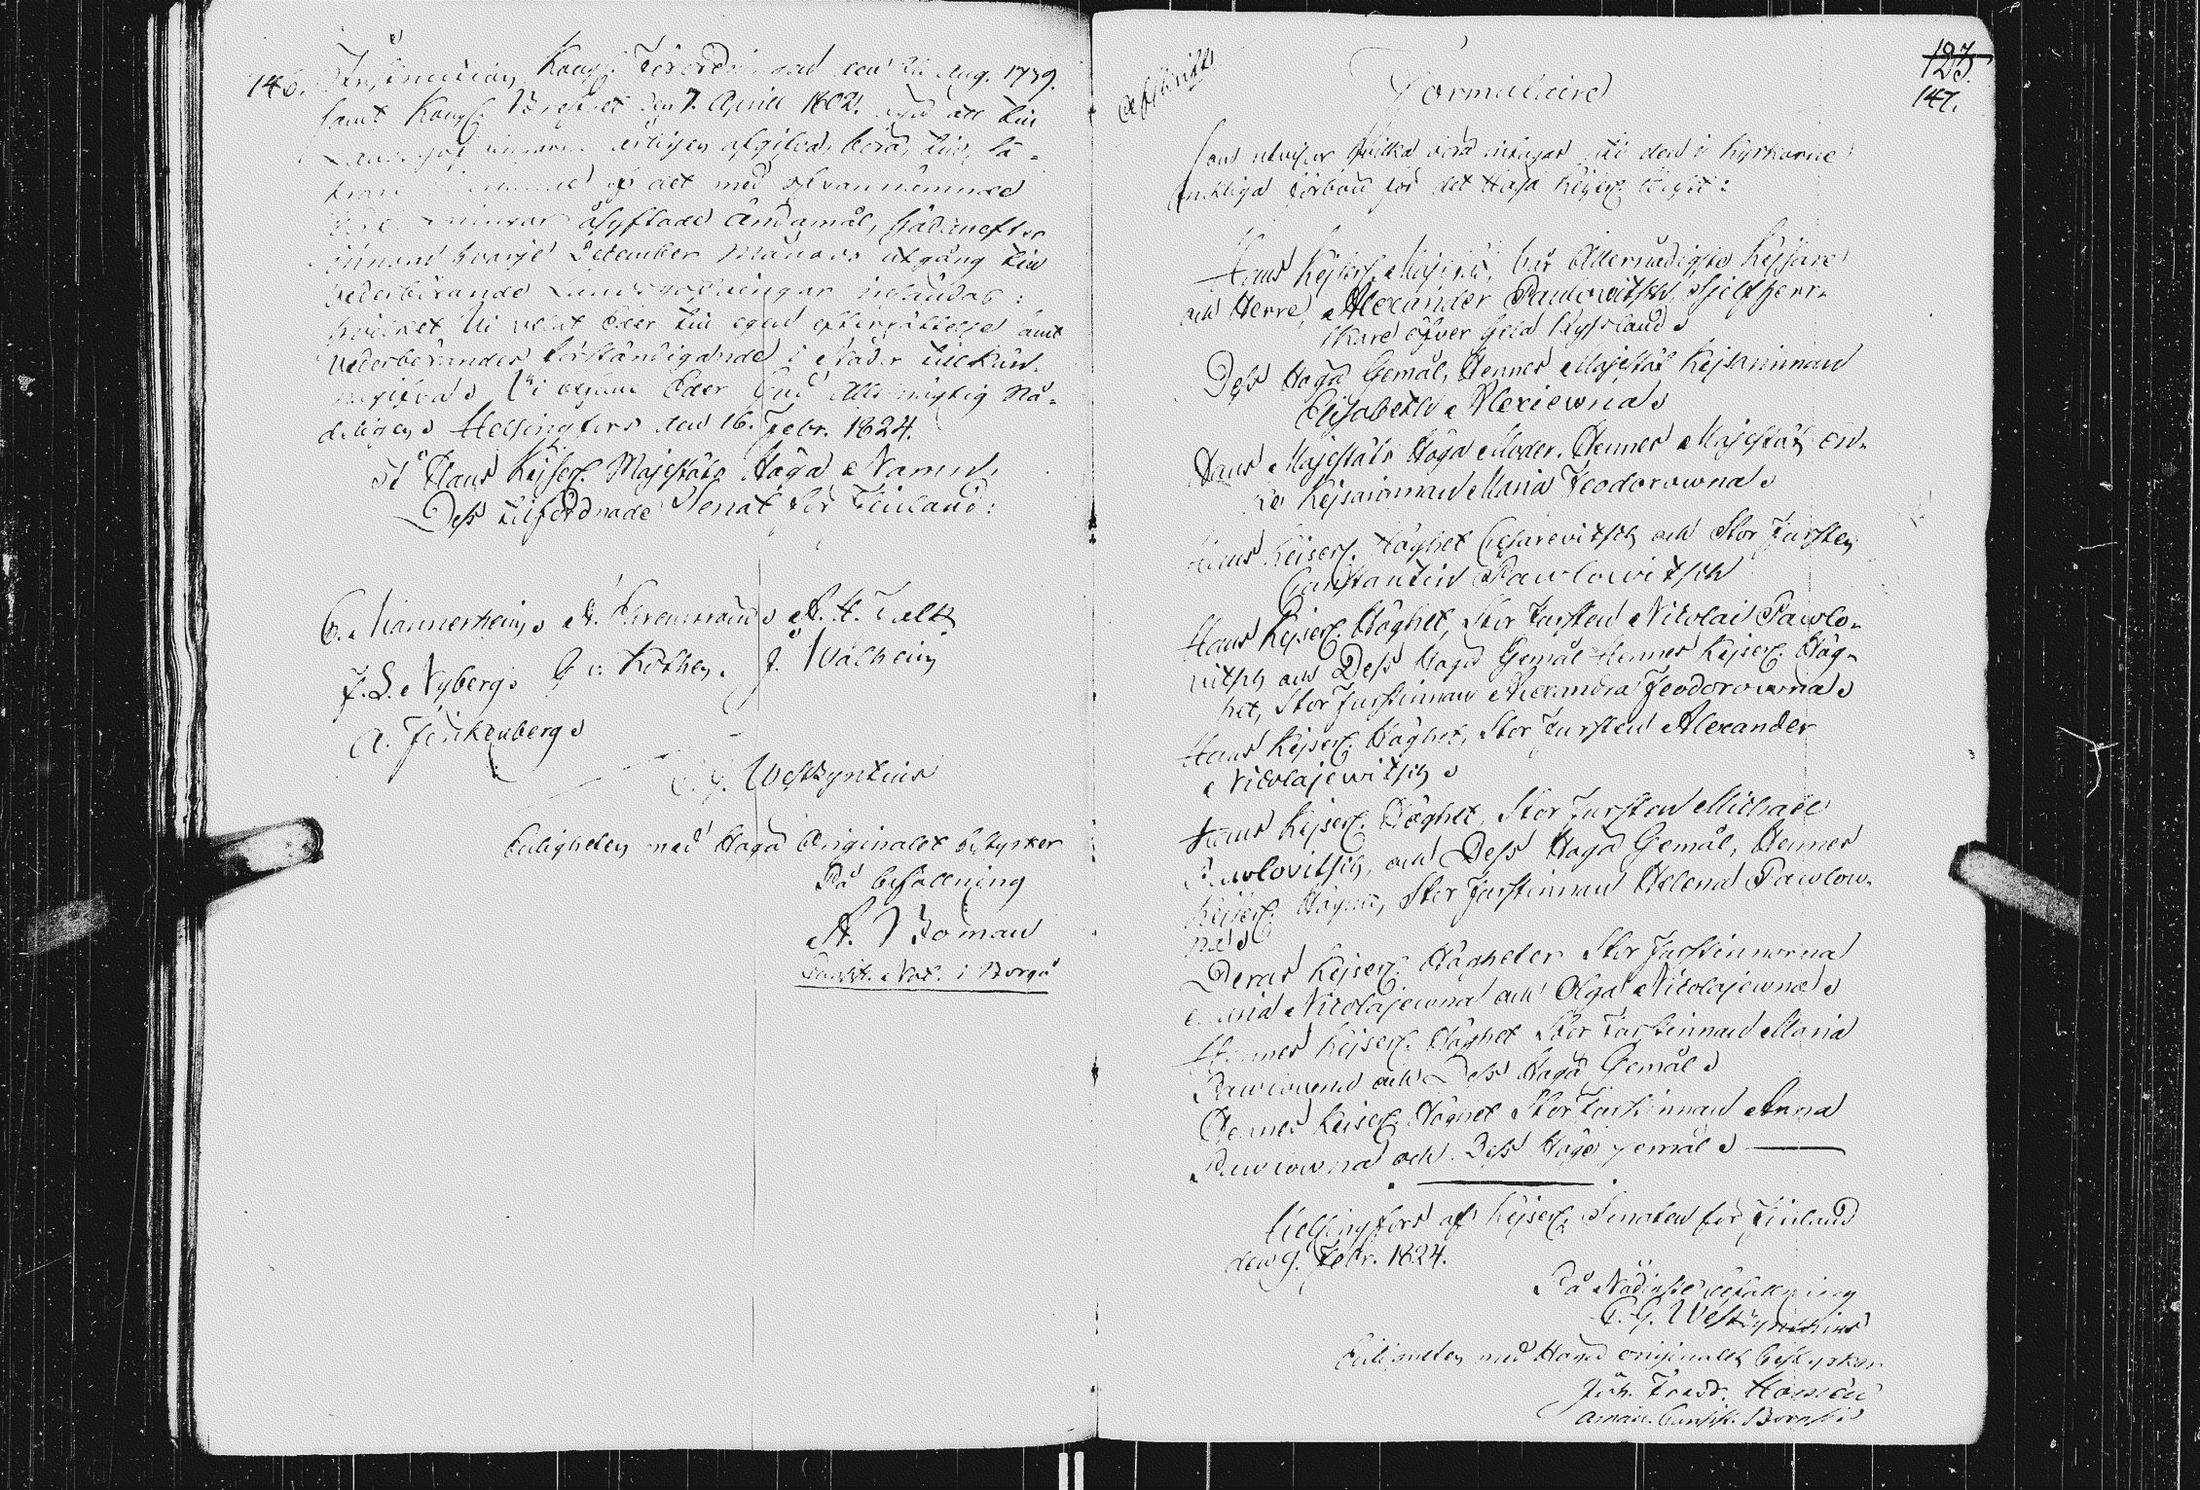 146.
Instruction, Kongl. Förordningen den Aug. 1739.
samt Kongl. Brefvet den 7. April 1802. att till
årligen afgifvas böra, till så-
det med ofvannämnde
åsyftade ändamål, hädanefter
innom hvarje December Månads utgång till
vederbörande insändas:
hvilket Vi velat Eder till egen efterrättelse samt
vederbörandes förständigande i Nåder tillkän-
nagifva. Vi befalle Eder Gud Allsmägtig Nå-
deligen. Helsingfors den 16. Febr. 1824.
I Hans Kejserl. Majestäts Höga Namn,
Dess tillförordnade Senat för Finland:
C. Mannerheim. A. H. Falck
F. S. Nyberg. G v: Kothen. J. Walheim
A. Falckenberg.
C. G. Westzynthius
Enligheten med Höga Originalet bestyrker
På befallning
A. Boman
Consist. Not. i Borgå
Afskrift
123.
147.
Formulaire
som utvisar hvilka böra intagas uti den i kyrkorne
vanliga förbön för det Höga Kejserl. Huset:
Hans Kejserl. Majestät, vår Allernådigste Kejsare
och Herre, Alexander Paulowitsch, Sjelfherr-
skare öfver hela Ryssland.
Dess Höga Gemål, Hennes Majestät Kejsarinnan
Elisabeth Alexiewna.
Hans Majestäts Höga Moder, Hennes Majestät En-
ke Kejsarinnan Maria Feodorowna.
Hans Keiserl. Höghet Cesarevitsch och Stor Fursten
Constantin Pawlowitsch
Hans Kejserl. Höghet, Stor Fursten Nicolai Pawlo-
witsch och Dess Höga Gemål Hennes Kejserl. Hög-
het, Stor Furstinnan Alexandra Feodorowna.
Hans Kejserl. Höghet, Stor Fursten Alexander
Nicolajewitsch.
Hans Kejserl. Höghet, Stor Fursten Michael
Pawlovitsch, och Dess Höga Gemål, Hennes
Kejserl. Höghet, Stor Furstinnan Helena Pawlow-
na.
Deras Kejserl. Högheter Stor Furstinnorna
Maria Nicolajewna och Olga Nicolajewna.
Hennes Kejserl. Höghet Stor Furstinnan Maria
Pawlowna och Dess Höga Gemål.
Hennes Keiserl. Höghet Stor Furstinnan Anna
Pawlowna och Dess Höga gemål.
Helsingfors af Kejserl. Senaten för Finland
den 9. Febr. 1824.
På Nådigste befallning
C. G. Westzynthius
Enligheten med Höga originalet bestyrker
Joh. Fredr.